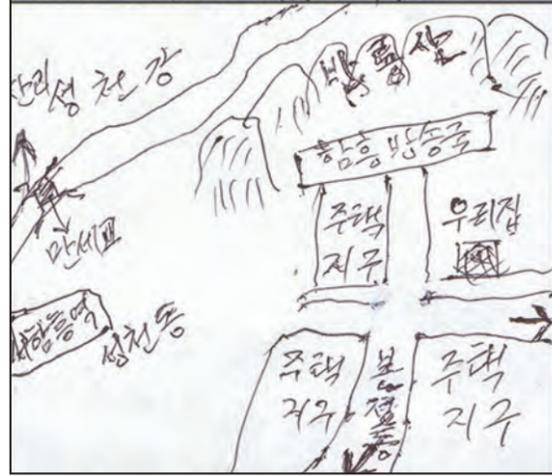 성천강
반룡산
함흥 방송국
주택
지구
우리집
만세교
서함흥역
성천동
주택
지구
본정통
주택
지구